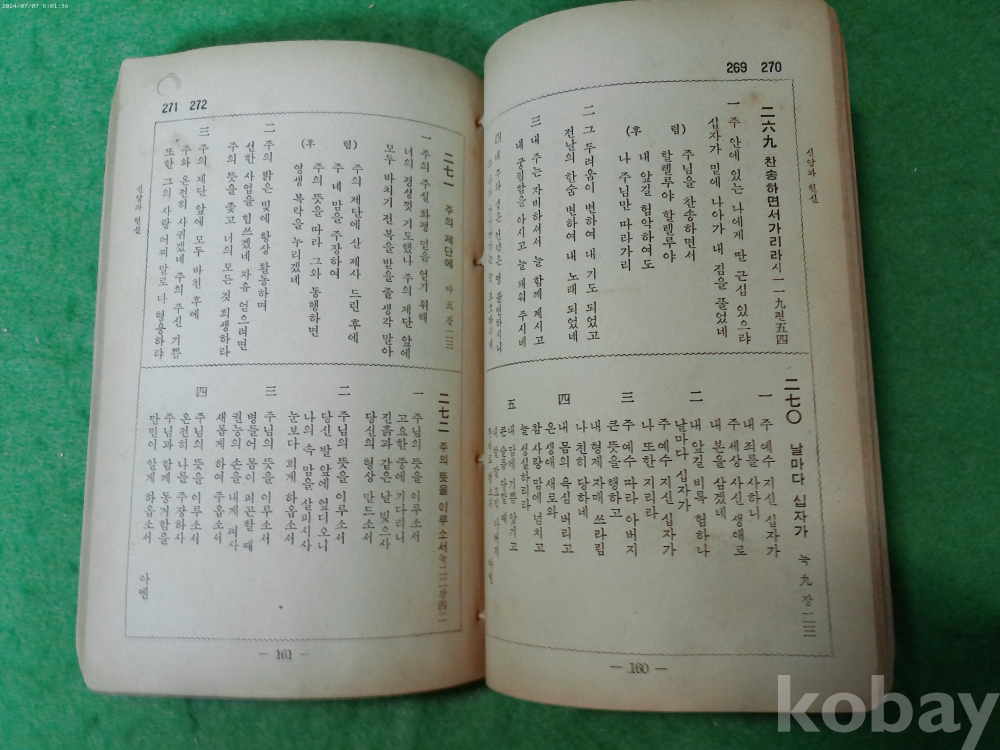 2024/07/07 6:01:36
269 270
신앙과 헌신
二六九 찬송하면서가리라 시 一一九편五四
一 주 안에 있는 나에게 딴 근심 있으랴
십자가 밑에 나아가 내 짐을 풀었네
(후렴)
주님을 찬송하면서
할렐루야 할렐루야
내 앞길 험악하여도
나 주님만 따라가리
二 그 두려움이 변하여 내 기도 되었고
전날의 한숨 변하여 내 노래 되었네
三 내 주는 자비하셔서 늘 함께 계시고
내 궁핍함을 아시고 늘 채워 주시네
四 내 주와 맺은 언약은 영 불변하시니
二七〇 날마다 십자가 눅 九장 二三
一 주 예수 지신 십자가
내 죄를 사하니
주 세상 사신 생애로
내 본을 삼겠네
二 내 앞길 비록 험하나
날마다 십자가
주 예수 지신 십자가
나 또한 지리라
三 주 예수 따라 아버지
큰 뜻을 행하고
내 형제 자매 쓰라림
나 친히 당하네
四 내 몸의 욕심 버리고
온 생애 새로와
참 사랑 맘에 넘치고
늘 성실하리라
五 내 맘에 기쁨 있기고
큰 슬픔 당할 때
— 160 —
271 272
신앙과 헌신
二七一 주의 제단에 마 五장 二三
一 주의 주실 화평 믿음 얻기 위해
너의 정성껏 기도했나 주의 제단 앞에
모두 바치기 전 복을 받을 줄 생각 말아
(후렴)
주의 제단에 산 제사 드린 후에
주 네 맘을 주장하여
주의 뜻을 따라 그와 동행하면
영생 복락을 누리겠네
二 주의 밝은 빛에 항상 활동하며
선한 사업을 힘쓰겠네 자유 얻으려면
주의 뜻을 좇고 너의 모든 것 희생하라
三 주의 제단 앞에 모두 바친 후에
주와 온전히 사귀겠네 주의 주신 기쁨
또한 그의 사랑 어찌 말로 다 형용하랴
二七二 주의 뜻을 이루소서 눅 二二장 四二
一 주님의 뜻을 이루소서
고요한 중에 기다리니
진흙과 같은 날 빚으사
당신의 형상 만드소서
二 주님의 뜻을 이루소서
당신 발 앞에 엎디오니
나의 속 맘을 살피시사
눈보다 희게 하옵소서
三 주님의 뜻을 이루소서
병들어 몸이 피곤할 때
권능의 손을 내게 펴사
새롭게 하여 주옵소서
四 주님의 뜻을 이루소서
온전히 나를 주장하사
주님과 함께 동거함을
만민이 알게 하옵소서
아멘
— 161 —
kobay